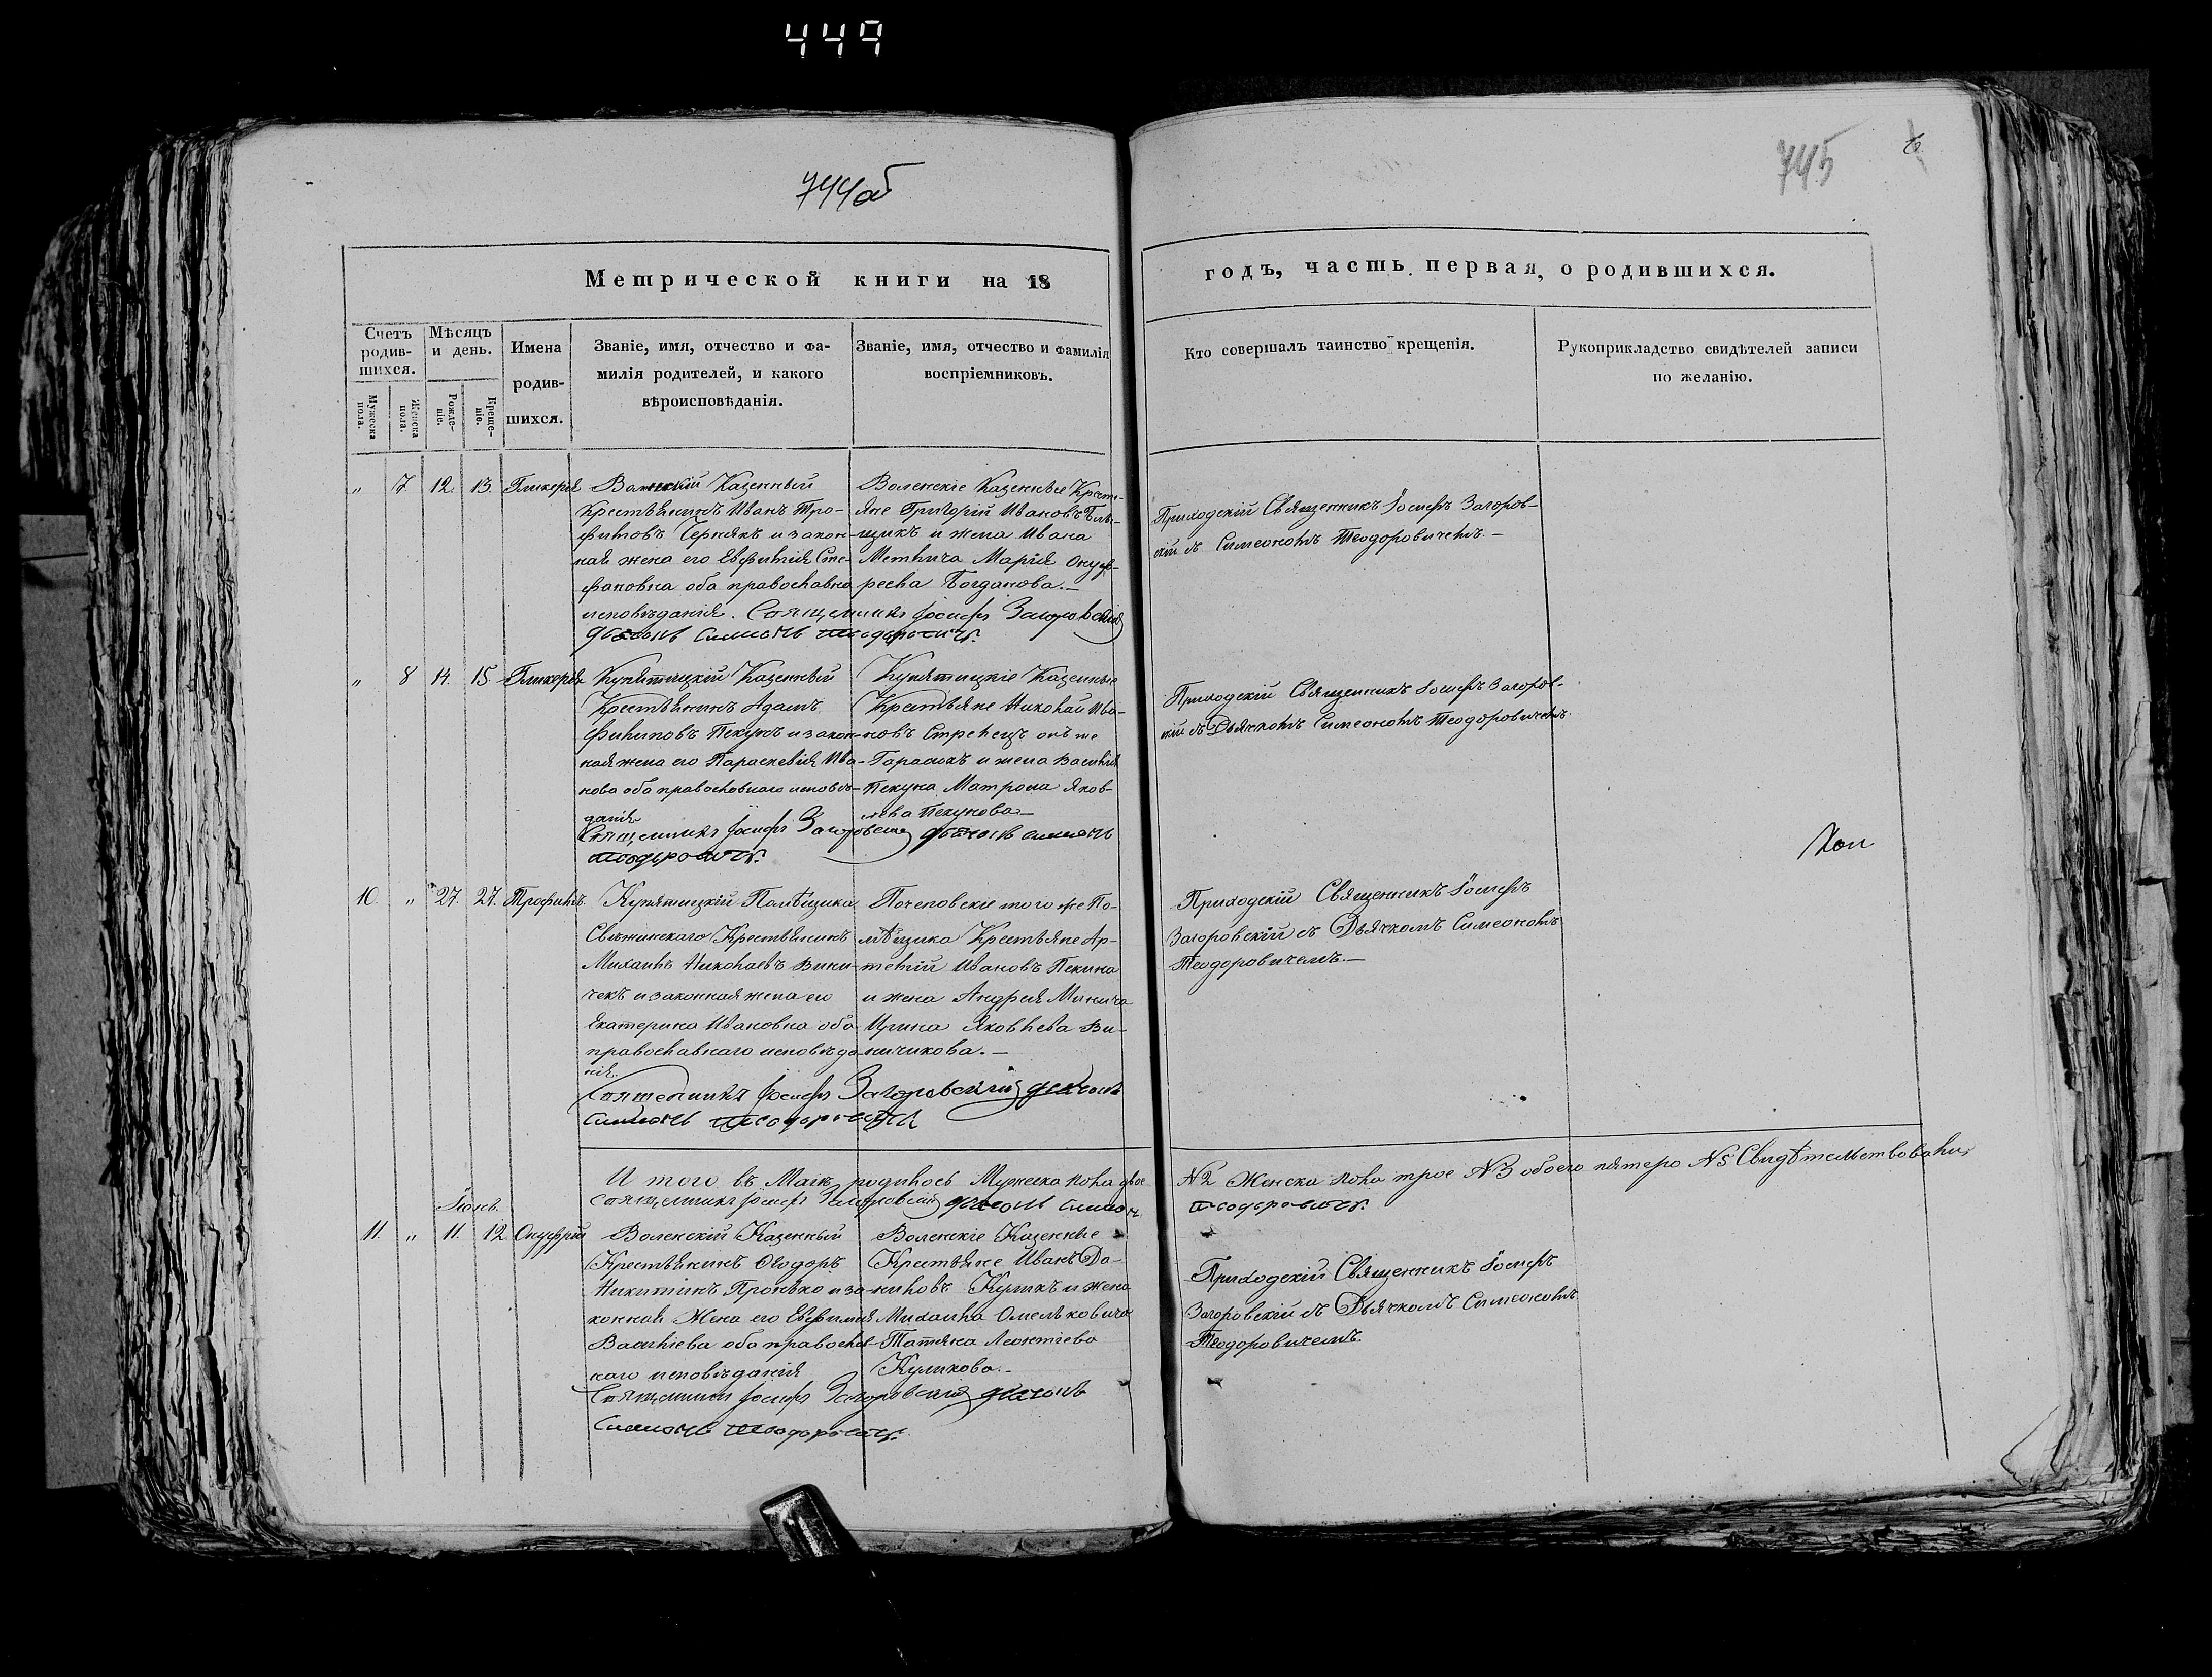 449
744об
745
Метрической книги на 18
годъ, часть первая, о родившихся.
Счетъ родив-шихся.
Мѣсяцъ и день.
Имена родив-шихся.
Званіе, имя, отчество и фа-
милія родителей, и какого
вѣроисповѣданія.
Званіе, имя, отчество и фамилія
воспріемниковъ.
Кто совершалъ таинство крещенія.
Рукоприкладство свидѣтелей записи
по желанію.
Мужеска пола.
Женска пола.
Рожде-ніе.
Креще-ніе.
" 7 12. 13. Гликерія
Казенный
Крестьянинъ Иванъ Тро-
фимовъ Чернякъ и закон-
ная жена его Евфимія Сте-
фановна оба православна
исповѣданія. Священникъ Іосифъ Загоровскій
Симеонъ Теодоровичъ.
Воленскіе Казенные Крест-
яне Григорій Ивановъ
и жена Ивана
Марія Онуф-
Богданова.—
Приходскій Священникъ Іосифъ Загоров-
скій съ Симеономъ Теодоровичемъ.—
" 8 14. 15 Гликерія
Купятицкій Казенный
Крестьянинъ Адамъ
Филиповъ Пекунъ и закон-
ная жена его Параскевія Ива-
нова оба православнаго исповѣ-
данія
Священникъ Іосифъ Загоровскій Симеонъ
Теодоровичъ.
Купятицкіе Казенные
Крестьяне Николай Ива-
новъ Стрелецъ онъ же
и жена Василія
Пекуна Матрона Яков-
лева Пекунова—
Приходскій Священникъ Іосифъ Загоров-
скій съ Дьячкомъ Симеономъ Теодоровичемъ.
10. " 27. 27. Трофимъ.
Купятицкій Помѣщика
Свежинскаго Крестьянинъ
Михаилъ Николаевъ Вини-
чекъ и законная жена его
Екатерина Ивановна оба
православнаго исповѣда-
нія.
Священникъ Іосифъ Загоровскій
Симеонъ Теодоровичъ
Почеповскіе того же По-
мѣщика Крестьяне Ар-
темій Ивановъ Пекина
и жена Андрея Минича
Ирина Яковлева Ви-
ничикова.—
Приходскій Священникъ Іосифъ
Загоровскій съ Дьячкомъ Симеономъ
Теодоровичемъ.—
И того въ Маіѣ родилось Мужеска пола двое
№2 Женска пола трое №3 обоего пятеро №5 Свидѣтельствовали
Священникъ Іосифъ Загоровскій Симеонъ
Теодоровичъ.
Іюнь.
11. " 11. 12. Онуфрій
Воленскій Казенный
Крестьянинъ Ѳеодоръ
Никитинъ Пронько и за-
конная Жена его Евфимія
Василіева оба православ-
наго исповѣданія
Священникъ Іосифъ Загоровскій
Симеонъ Теодоровичъ.
Воленскіе Казенные
Крестьяне Иванъ Да-
ниловъ Куликъ и жена
Михаила Омельковича
Татяна Леонтіева
Куликова.—
Приходскій Священникъ Іосифъ
Загоровскій съ Дьячкомъ Симеономъ
Теодоровичемъ.